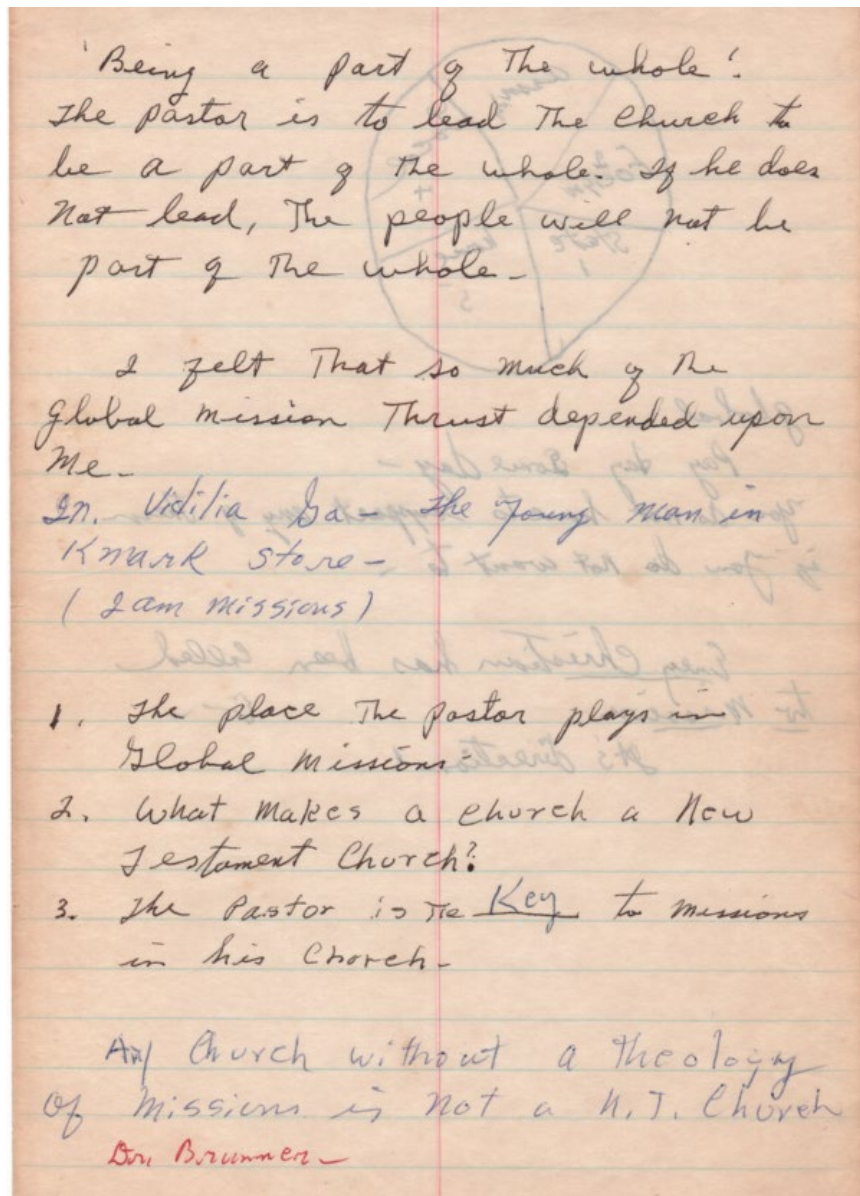 'Being a part of The whole'.
The pastor is to lead The Church to
be a part of the whole. If he does
Not lead, The people will not be
part of The whole-
I felt That so much of The
Global Mission Thrust depended upon
Me-
In. Vidilia Ga- The young man in
Kmark store-
(I am missions)
1. The place The Pastor plays in
Global Missions-
2. What Makes a Church a New
Testament Church?
3. The Pastor is The Key to missions
in his Church-
Any Church without a Theology
Of Missions is Not a N.T. Church
Brunner-